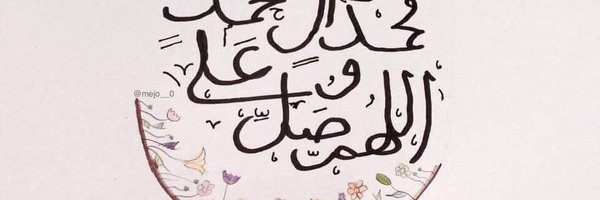 اللهمّ صلِّ
على
محمد و ال محمد
@mejo__0